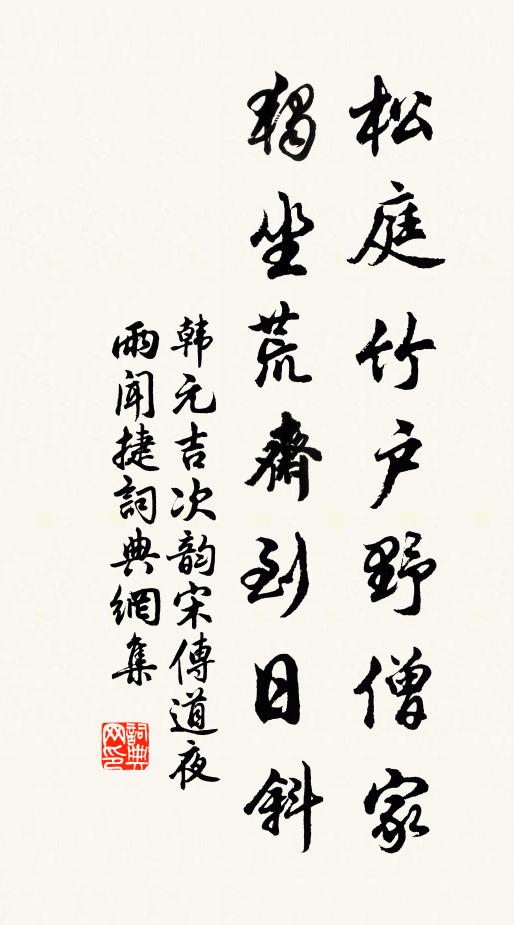 松庭竹户野僧家
獨坐荒齋到日斜
韩元吉次韵宋傳道夜
雨闻捷詞典網集
詞典
网印